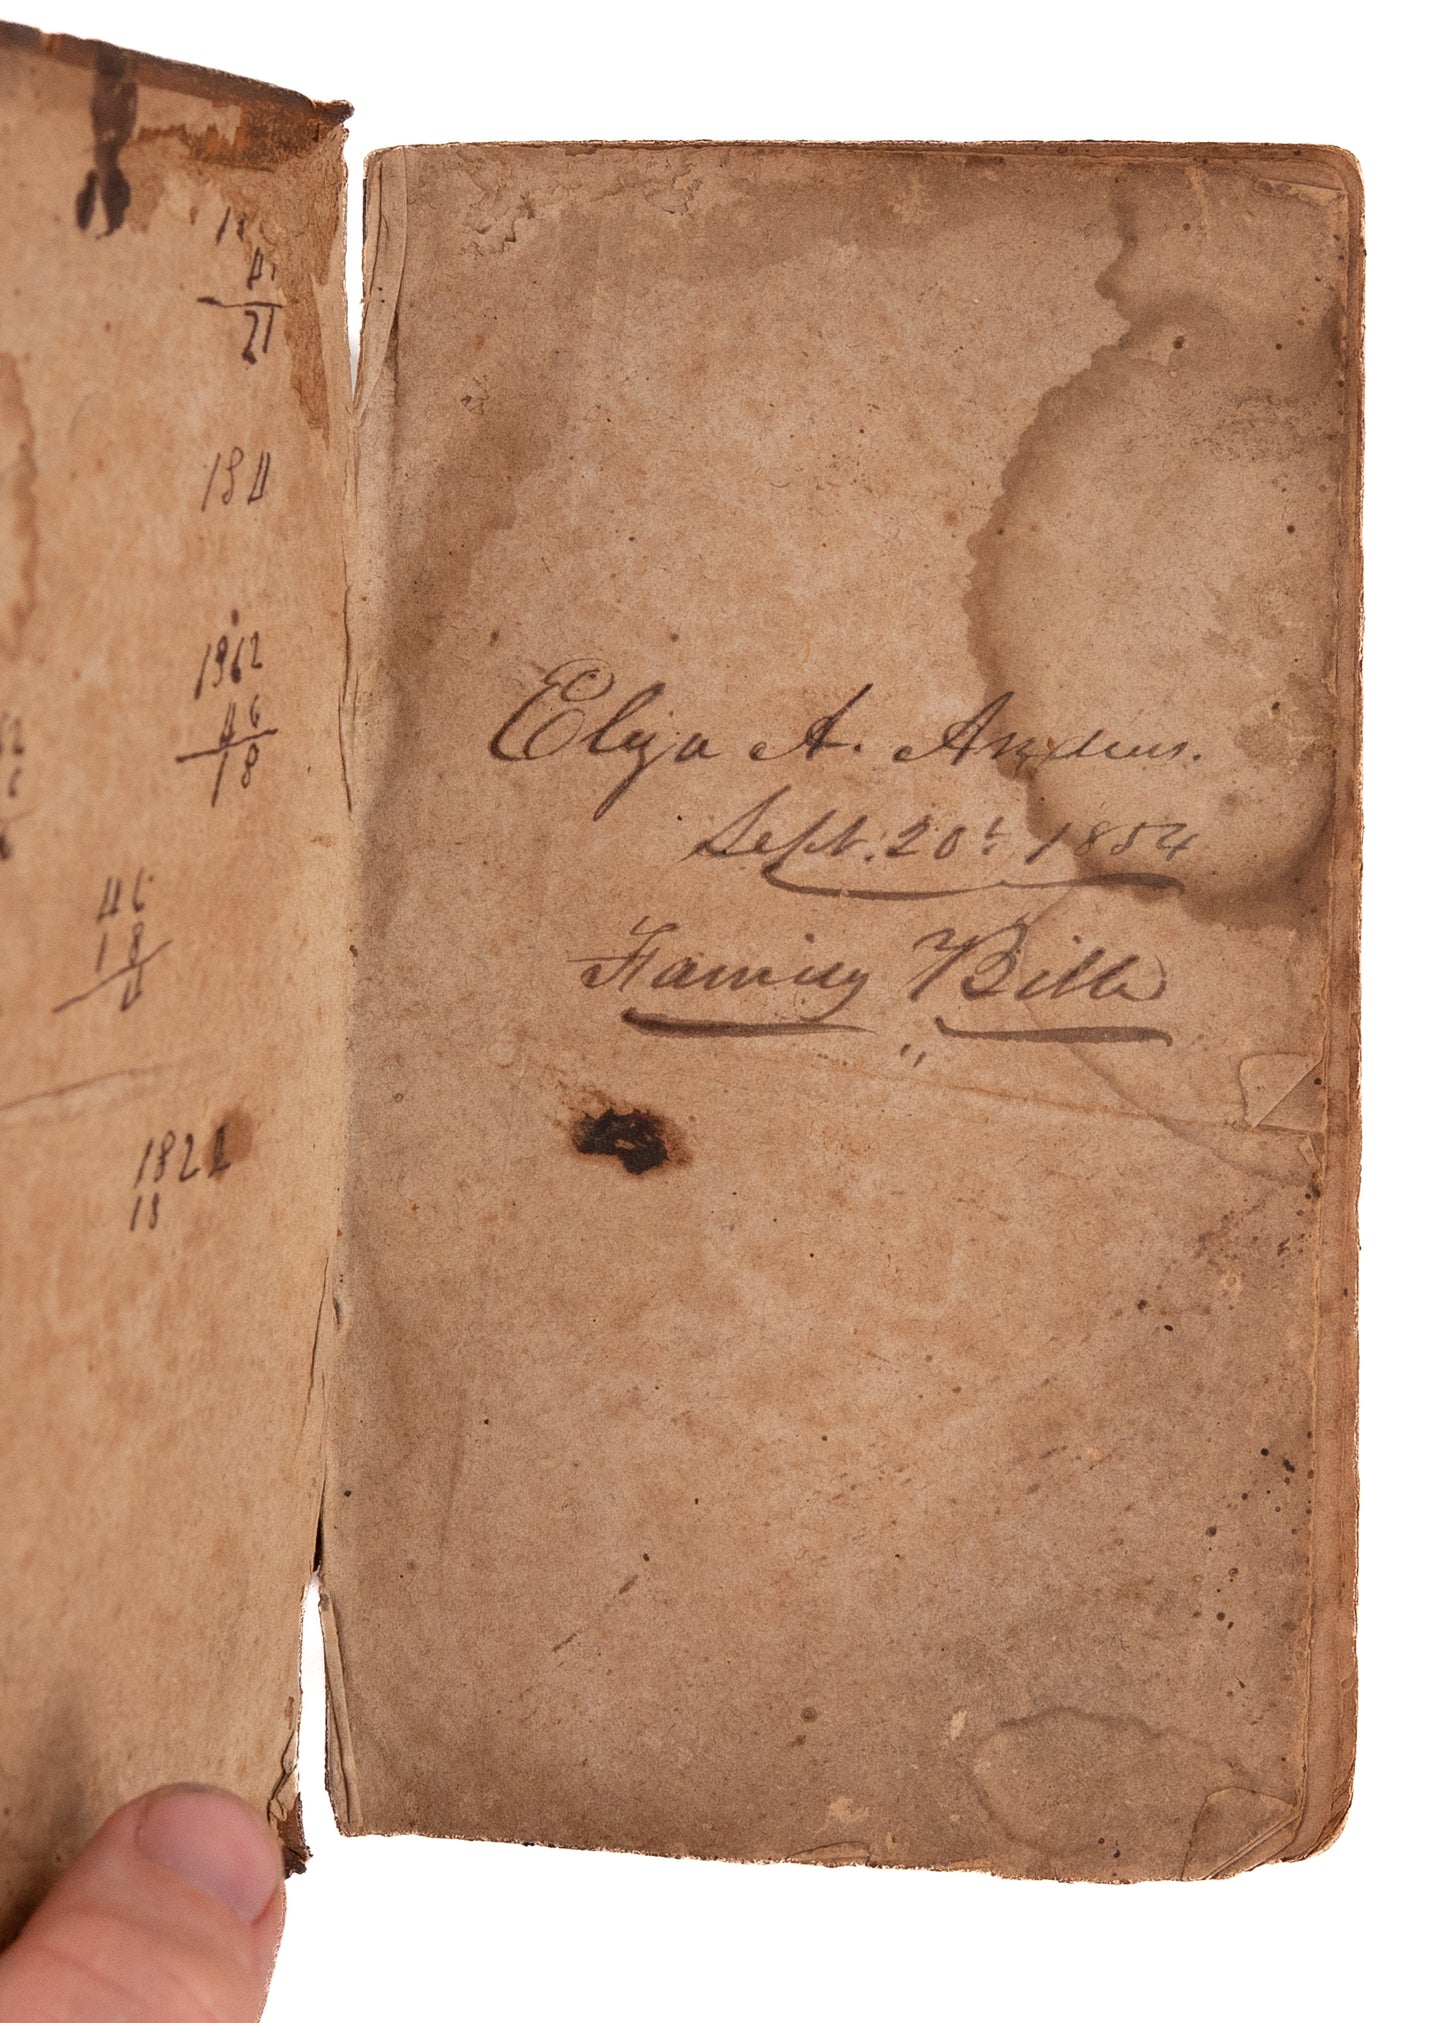 21
184
1962
46
18
46
18
1824
18
Eliza A. Andrus.
Sept. 20t 1854
Family Bible
"